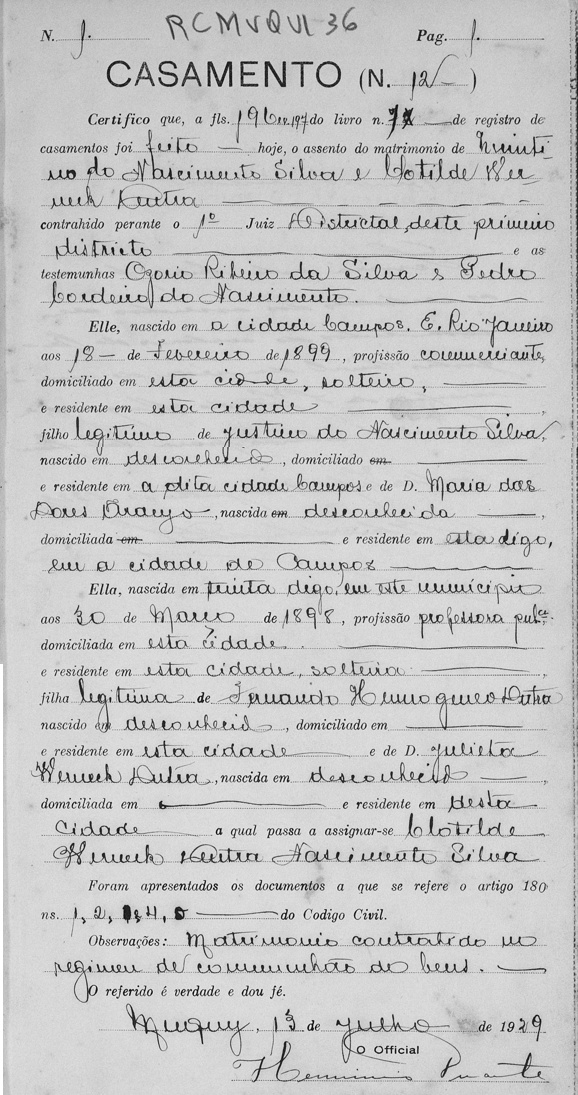 RCMVQUI 36
N. 1. Pag. 1.
CASAMENTO (N. 12)
Certifico que, a fls. 196 e v. 197 do livro n. 7 de registro de
casamentos foi feito hoje, o assento do matrimonio de Quinti-
no do Nascimento Silva e Clotilde Wer-
neck Dutra
contrahido perante o 1º Juiz Districtal, deste primeiro
districto e as
testemunhas Ozorio Ribeiro da Silva e Pedro
Cordeiro do Nascimento.
Elle, nascido em a cidade Campos. E. Rio Janeiro
aos 18 de Fevereiro de 1899, profissão commerciante,
domiciliado em esta cidade, solteiro,
e residente em esta cidade,
filho legitimo de Justino do Nascimento Silva,
nascido em desconhecido, domiciliado em
e residente em a dita cidade Campos e de D. Maria das
Dores Araujo, nascida em desconhecida,
domiciliada em e residente em esta digo,
em a cidade de Campos
Ella, nascida em trinta digo, em este municipio
aos 30 de Março de 1898, profissão professora pub.ca
domiciliada em esta cidade.
e residente em esta cidade, solteira,
filha legitima de Fernando Hermogineo Dutra
nascido em desconhecido, domiciliado em
e residente em esta cidade e de D. Julieta
Werneck Dutra, nascida em desconhecido,
domiciliada em e residente em desta
cidade a qual passa a assignar-se Clotilde
Werneck Dutra Nascimento Silva
Foram apresentados os documentos a que se refere o artigo 180
ns. 1, 2, 4, do Codigo Civil.
Observações: Matrimonio contrahido no
regimen de communhão de bens.
O referido é verdade e dou fé.
Muquy, 13 de Julho de 1929
O Official
Herminio